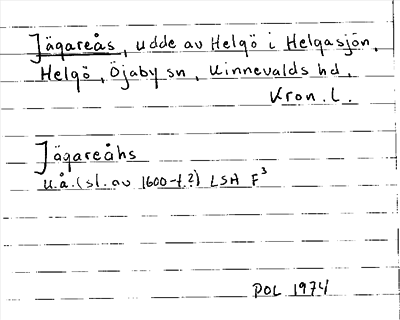 Jägareås, udde av Helgö i Helgasjön,
Helgö, Öjaby sn, Kinnevalds hd,
Kron. l.
Jägareåhs
u.å. (sl. av 1600-t.?) LSH F³
POL 1974